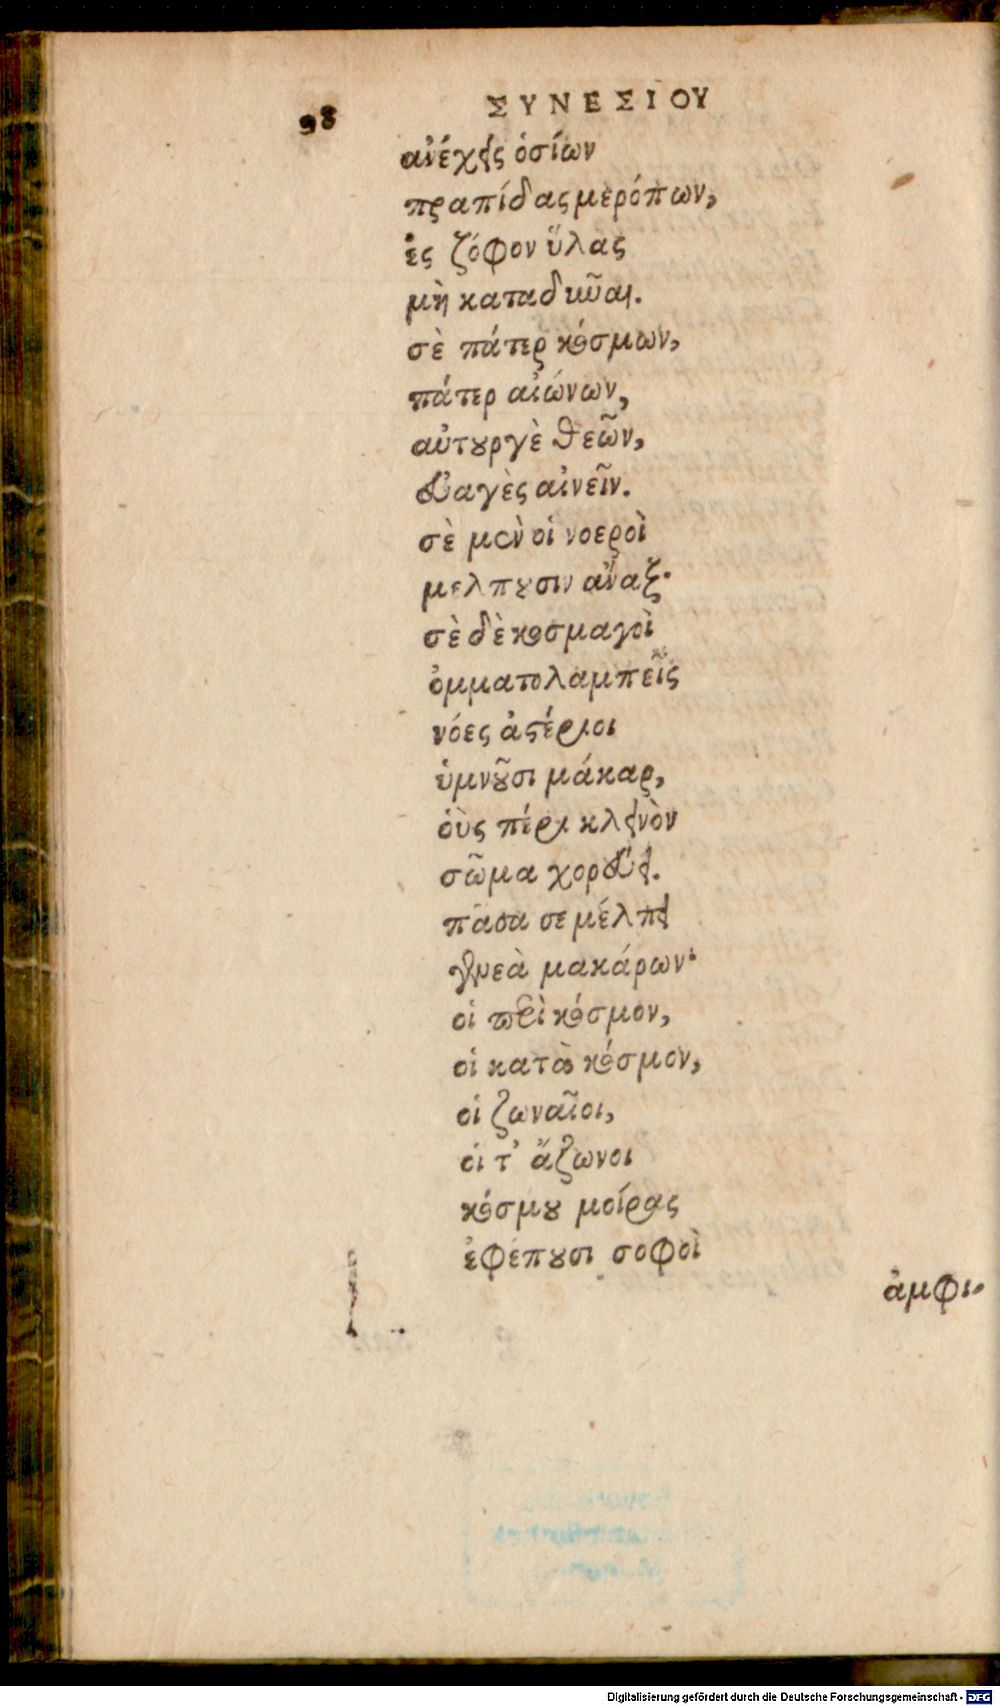 98 ΣΥΝΕΣΙΟΥ
ἀνέχεις ὁσίων
πραπίδας μερόπων,
ἐς ζόφον ὕλας
μὴ καταδῦναι.
σὲ πάτερ κόσμων,
πάτερ αἰώνων,
αὐτουργὲ θεῶν,
εὐαγὲς αἰνεῖν.
σὲ μὲν οἱ νοεροὶ
μέλπουσιν ἄναξ·
σὲ δὲ κοσμαγοὶ
ὀμματολαμπεῖς
νόες ἀστέριοι
ὑμνοῦσι μάκαρ,
οὓς πέρι κλεινὸν
σῶμα χορεύει.
πᾶσα σε μέλπει
γενεὰ μακάρων·
οἱ περὶ κόσμον,
οἱ κατὰ κόσμον,
οἱ ζωναῖοι,
οἵ τ' ἄζωνοι
κόσμου μοίρας
ἐφέπουσι σοφοὶ
ἀμφι-
Digitalisierung gefördert durch die Deutsche Forschungsgemeinschaft - DFG